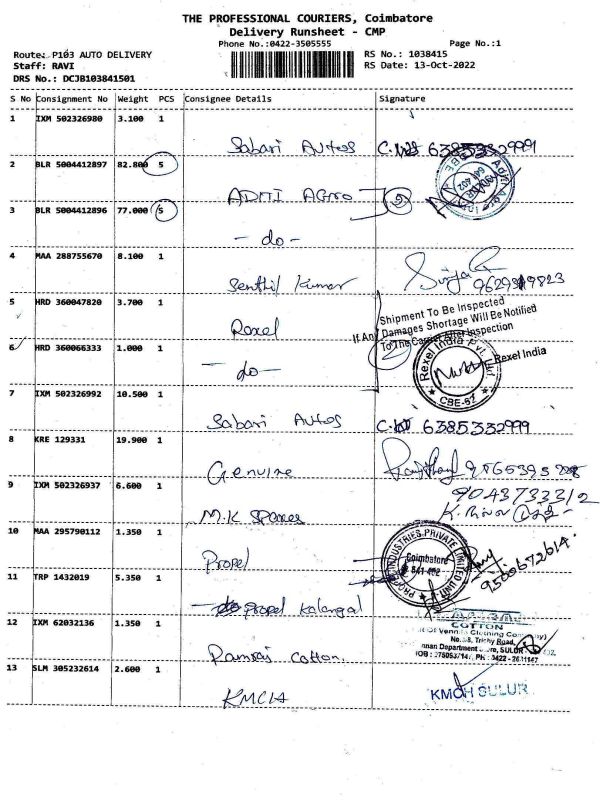 THE PROFESSIONAL COURIERS, Coimbatore
Delivery Runsheet - CMP
Phone No.:0422-3505555 Page No.:1
Route: P103 AUTO DELIVERY RS No.: 1038415
Staff: RAVI RS Date: 13-Oct-2022
DRS No.: DCJB103841501
S No Consignment No Weight PCS Consignee Details Signature
1 IXM 502326980 3.100 1
Sabari Autos 6385332999
2 BLR 5004412897 82.800 5
ADMI AGRO
3 BLR 5004412896 77.000 5
- do -
4 MAA 288755670 8.100 1
Senthil Kumar
5 HRD 360047820 3.700 1
Shipment To Be Inspected
If Any Damages Shortage Will Be Notified
Roxel To The Carrier After Inspection
6 HRD 360066333 1.000 1
- do - 2 Rexel India Pvt. Ltd. Rexel India
CBE-61
7 IXM 502326992 10.500 1
Sabari Autos 6385332999
8 KRE 129331 19.900 1
Genuine
9 IXM 502326937 6.600 1
9043733312
M.K Spares
10 MAA 295790112 1.350 1
INDUSTRIES PRIVATE LIMITED
Coimbatore
641 402
Propel
9500672614
11 TRP 1432019 5.350 1
propel Kalangal
12 IXM 62032136 1.350 1
COTTON
Clothing Company)
Trichy Road,
SULUR
Ramraj cotton.
13 SLM 305232614 2.600 1
KMCH SULUR
KMCH